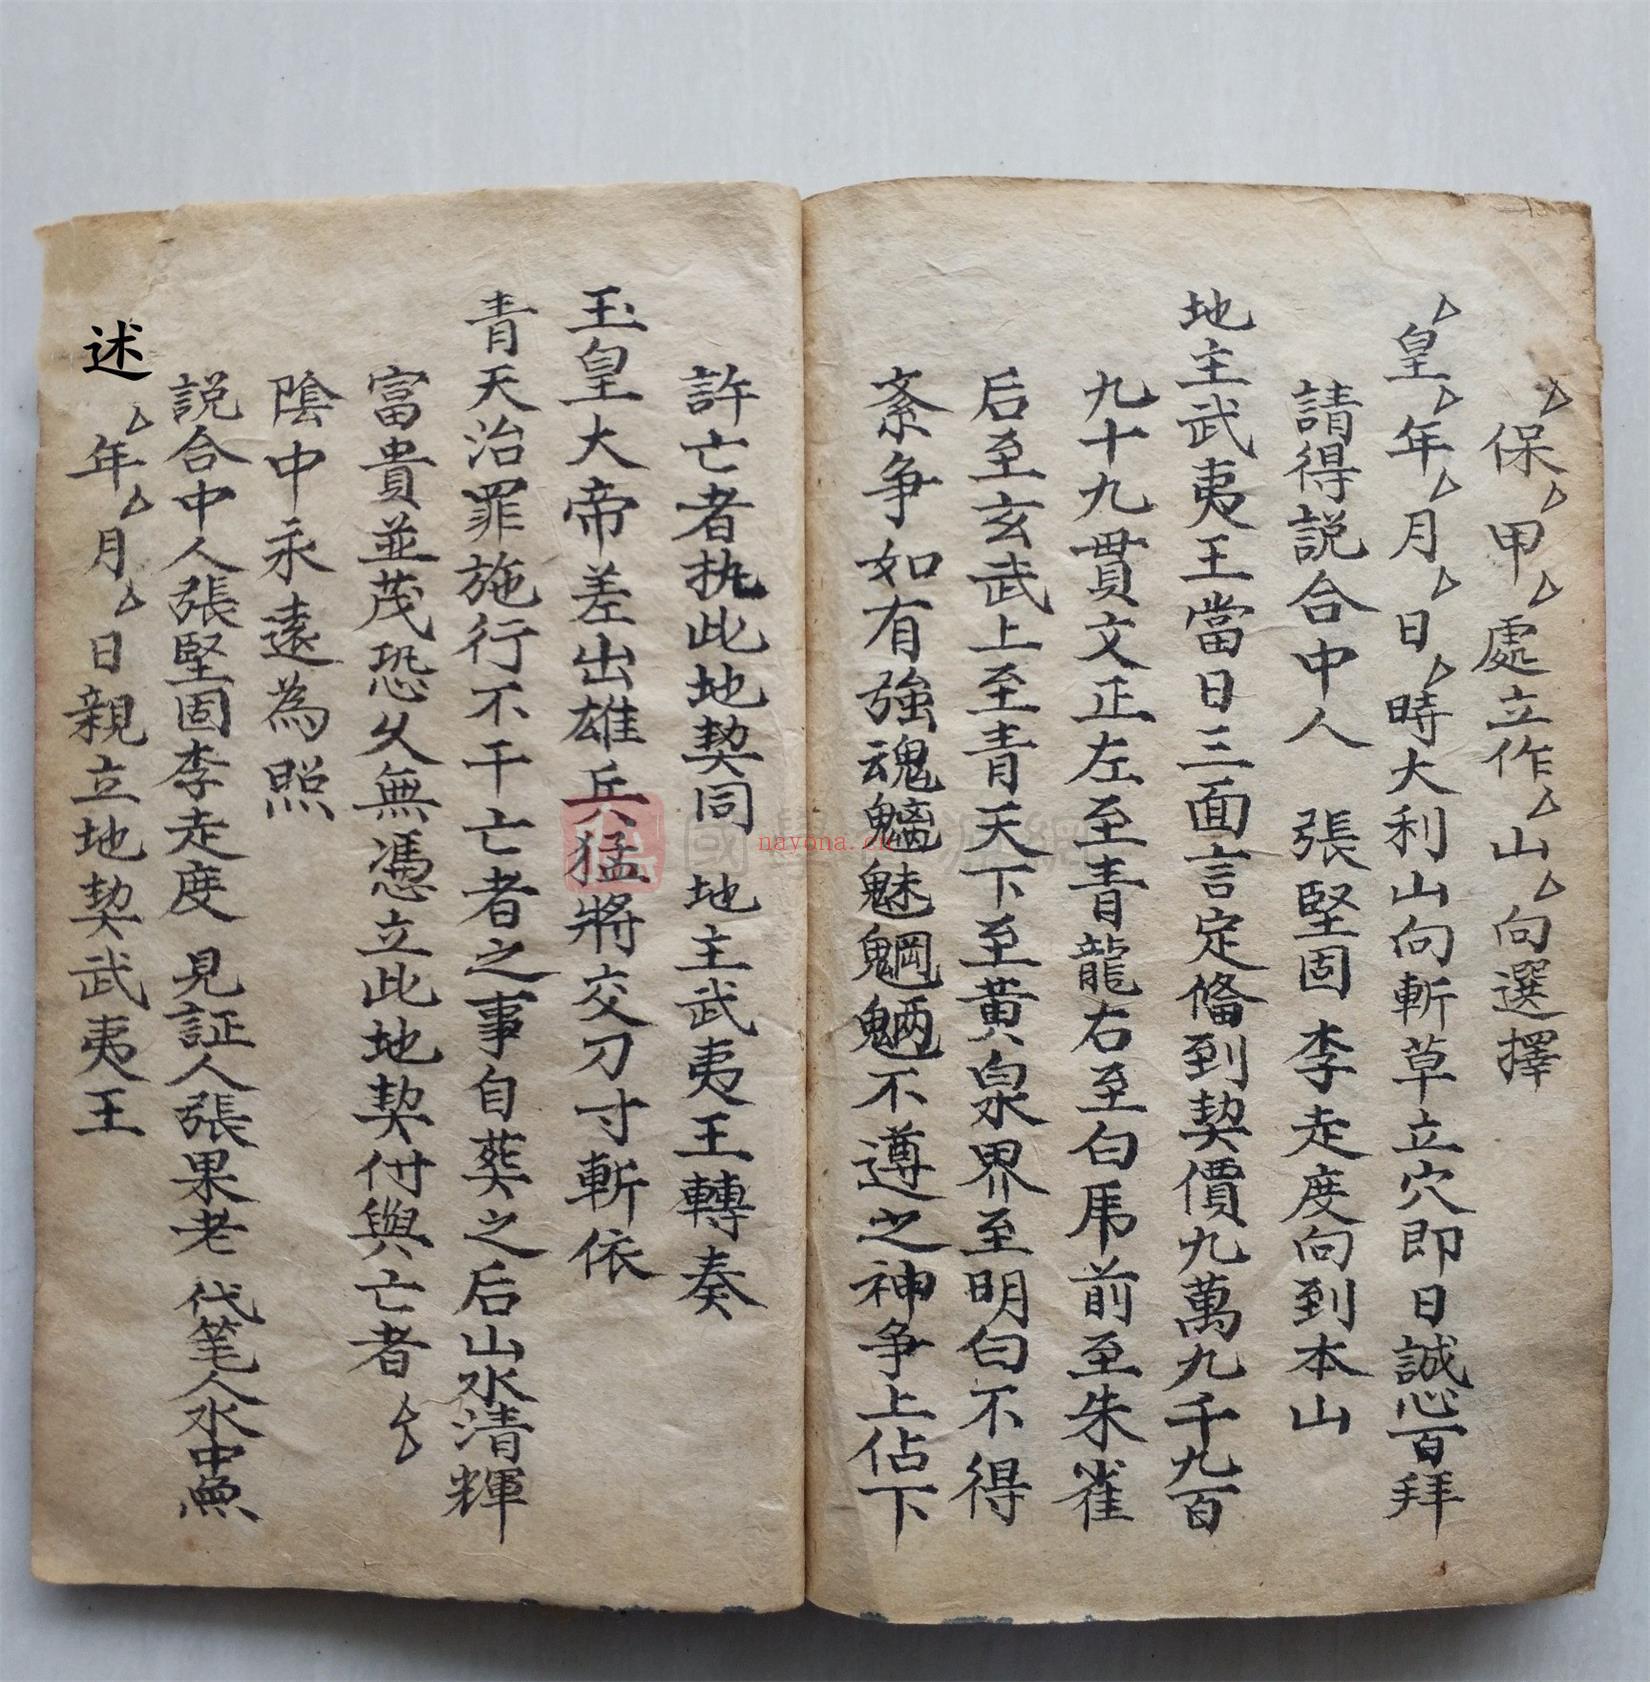 厶保厶甲厶處立作厶山厶向選擇
厶皇厶年厶月厶日厶時大利山向斬草立穴即日誠心百拜
請得説合中人 張堅固 李走度向到本山
地主武夷王當日三面言定俻到契價九萬九千九百
九十九貫文正左至青龍右至白乕前至朱雀
后至玄武上至青天下至黃泉界至明白不得
紊爭如有強魂魑魅魍魎不遵之神爭上佔下
許亡者执此地契同 地主武夷王轉奏
玉皇大帝差出雄兵猛將交刀寸斬依
青天治罪施行不干亡者之事自葬之后山水清輝
富貴並茂恐久無憑立此地契付與亡者厶厶
陰中永遠為照
説合中人張堅固李走度 見証人張果老 代筆人水中魚
述厶年厶月厶日親立地契武夷王
nayona.cn